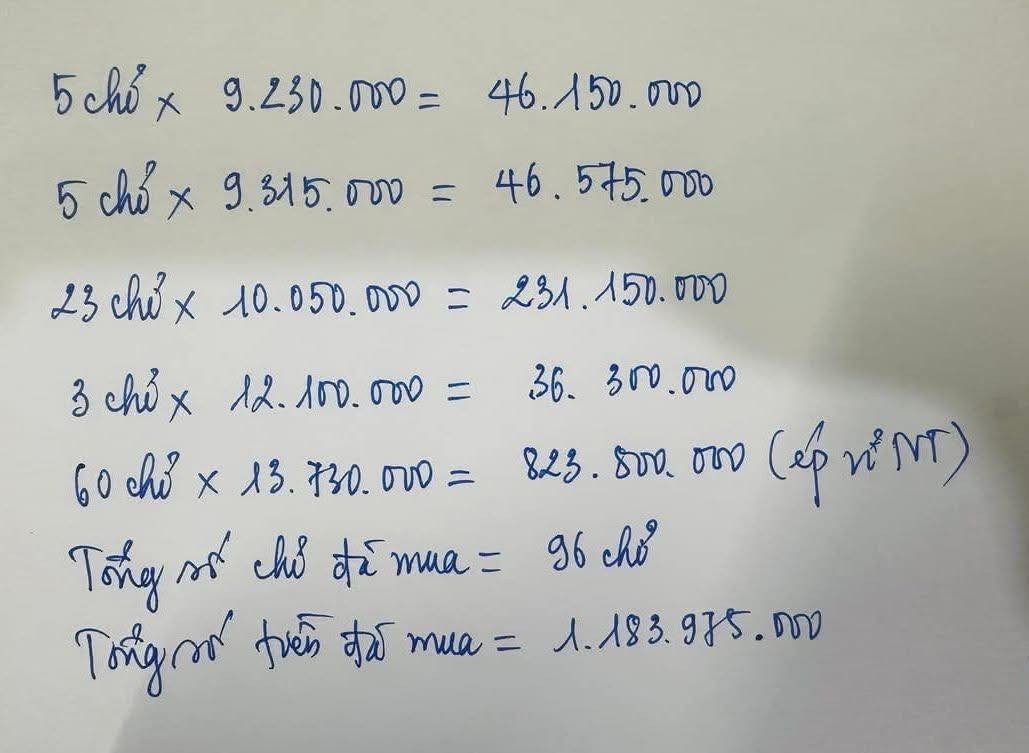 5 chỉ x 9.230.000 = 46.150.000
5 chỉ x 9.315.000 = 46.575.000
23 chỉ x 10.050.000 = 231.150.000
3 chỉ x 12.100.000 = 36.300.000
60 chỉ x 13.730.000 = 823.800.000 (ép vỉ NT)
Tổng số chỉ đã mua = 96 chỉ
Tổng số tiền đã mua = 1.183.975.000